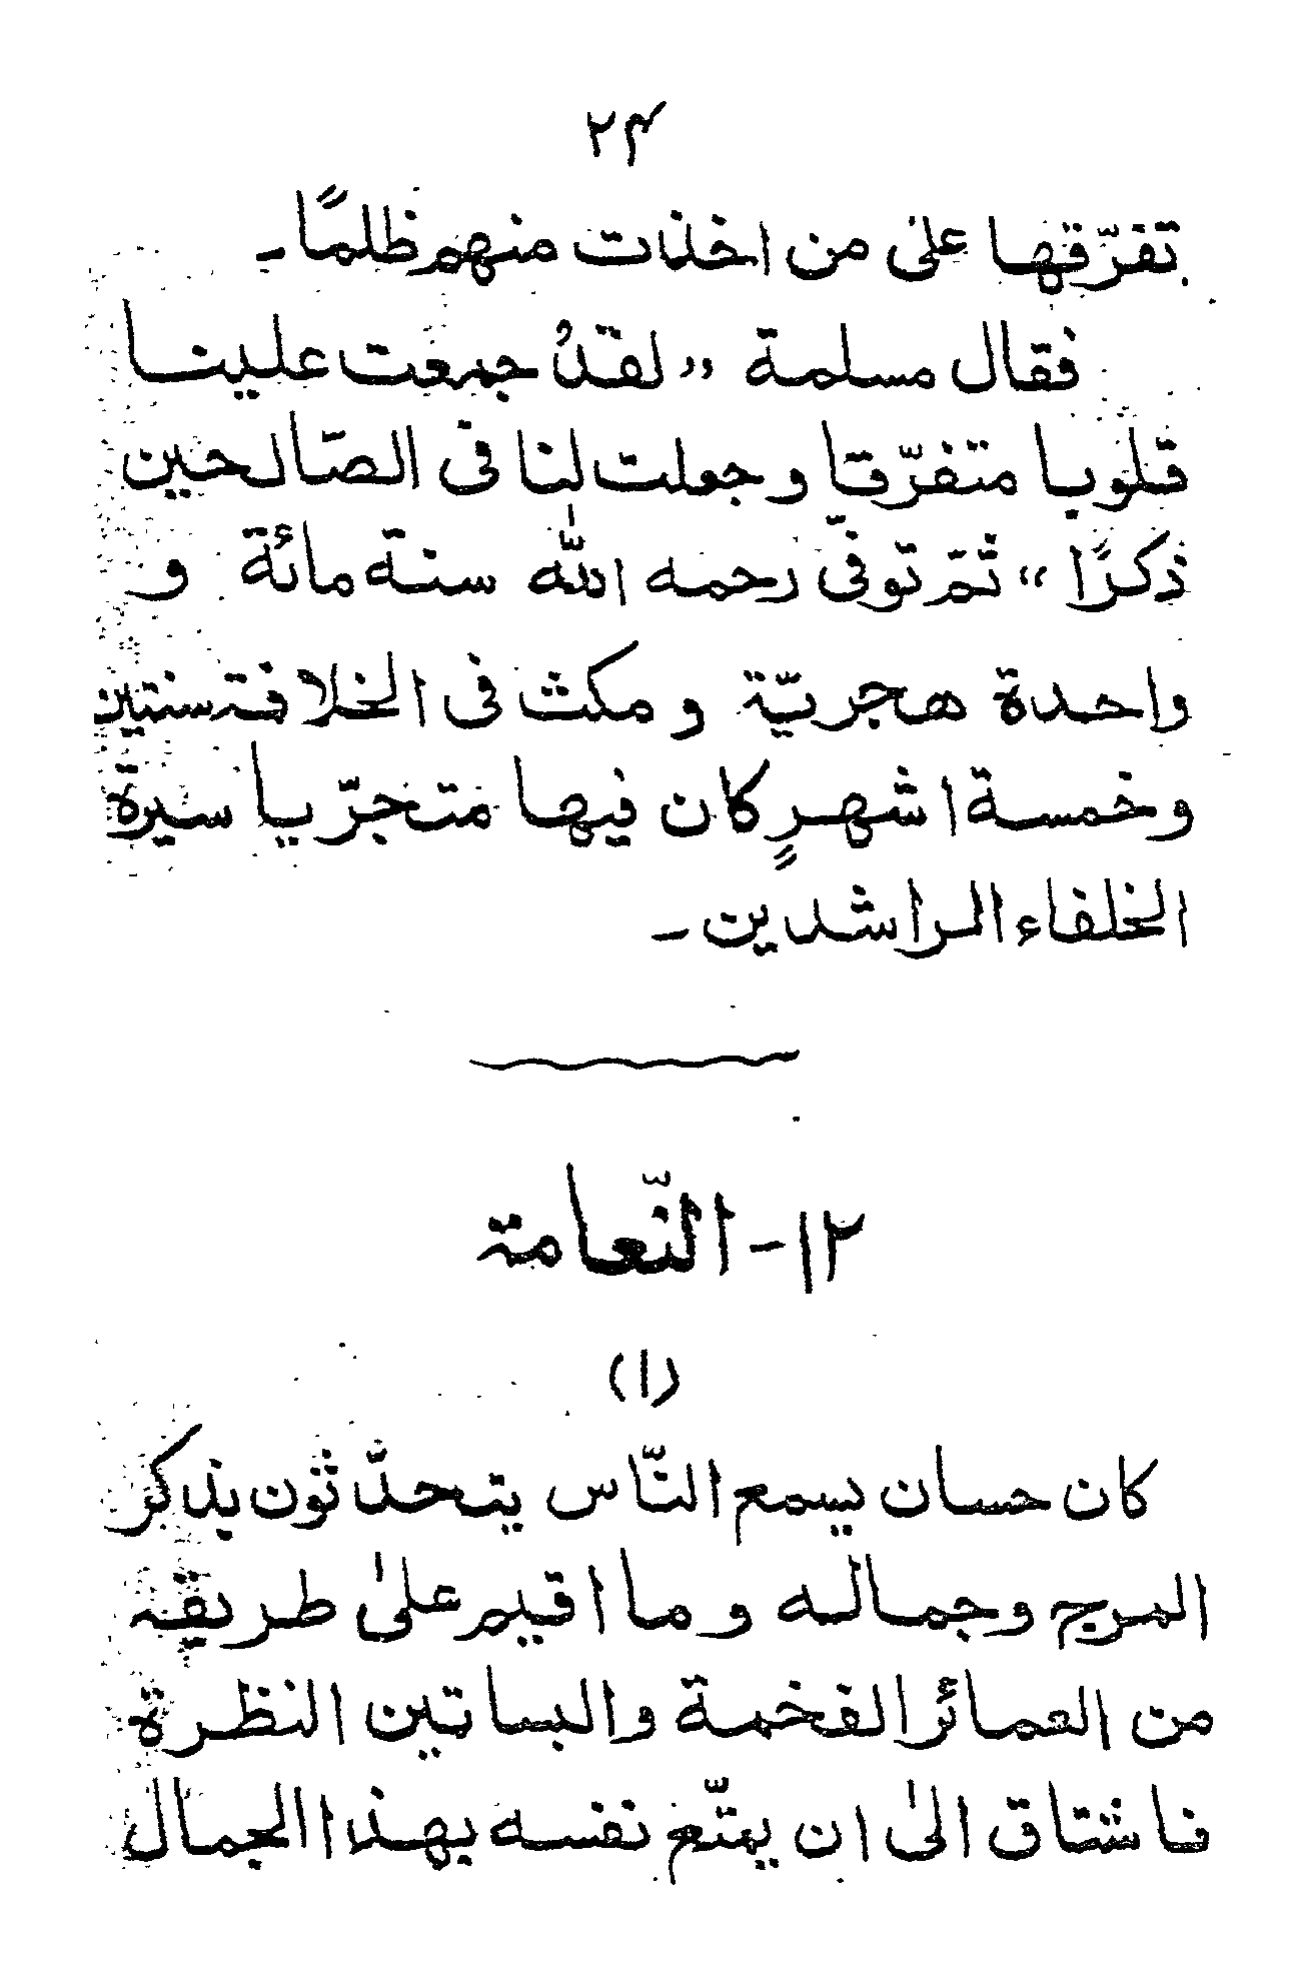 ۲۴
تفرّقها على من اخذت منهم ظلمًا۔
فقال مسلمة „ لقدُ جمعت علينا
قلوبا متفرّقا وجعلت لنا فى الصّالحين
ذكرًا “ ثمّ توفّى رحمه الله سنة مائة و
واحدة هجريّة ومكث فى الخلافة سنتين
وخمسة اشهرٍ كان فيها متحرّيا سيرة
الخلفاء الراشدين۔
۱۲- النّعامة
(۱)
كان حسان يسمع النّاس يتحدّثون بذكر
المرج وجماله وما اقيم علىٰ طريقه
من العمائر الفخمة والبساتين النظرة
فاشتاق الىٰ ان يمتّع نفسه بهذا الجمال